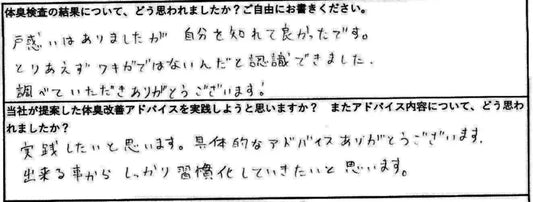 体臭検査の結果について、どう思われましたか？ご自由にお書きください。
戸惑いはありましたが 自分を知れて良かったです。
とりあえず ワキガではないんだと認識できました.
調べていただきありがとうございます!
当社が提案した体臭改善アドバイスを実践しようと思いますか？　またアドバイス内容について、どう思わ
れましたか？
実践したいと思います。具体的なアドバイスありがとうございます.
出来る事から しっかり習慣化していきたいと思います。